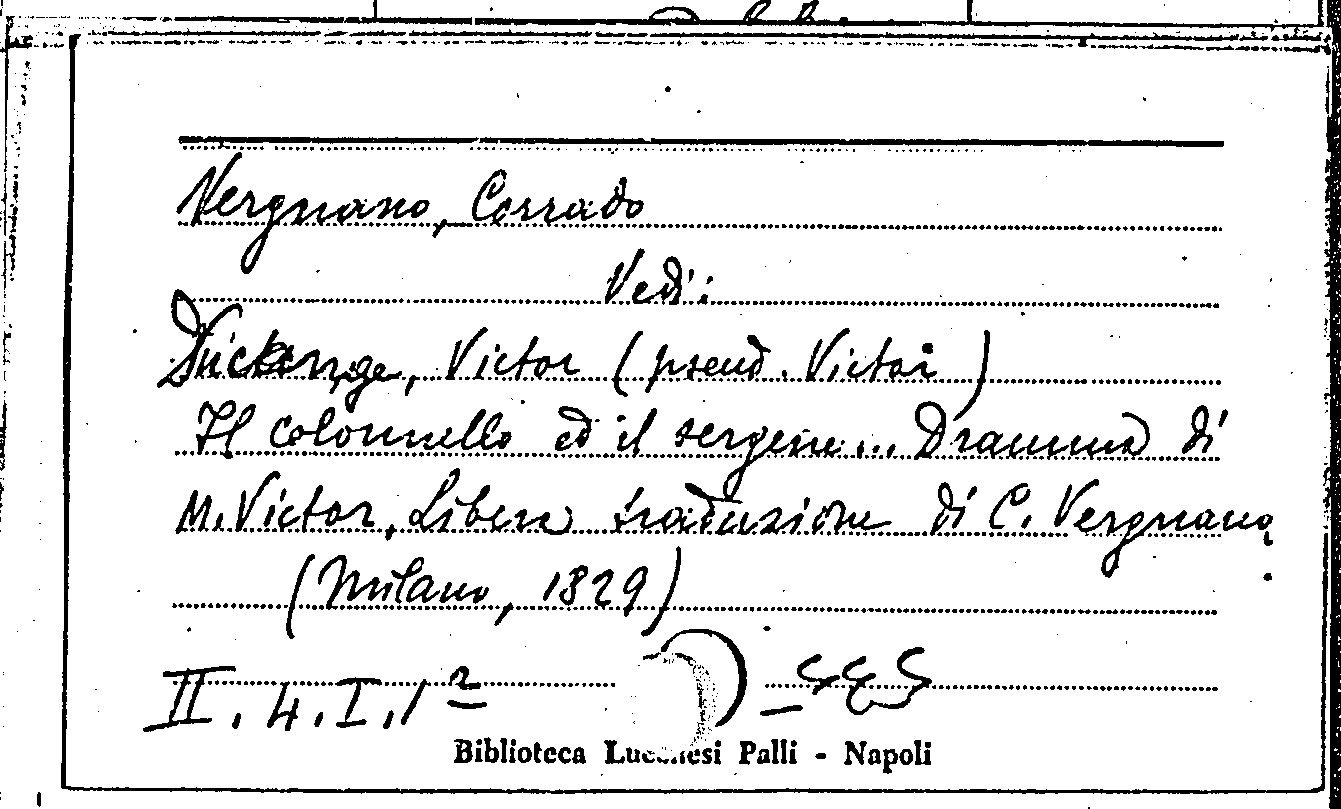 Vergnano, Corrado
Vedi:
Victor (pseud. Victor)
Il colonnello ed il sergente... Dramma di
M. Victor, Libera traduzione di C. Vergnano,
(Milano, 1829)
II. 4. I. 1²
Biblioteca Lucchesi Palli - Napoli